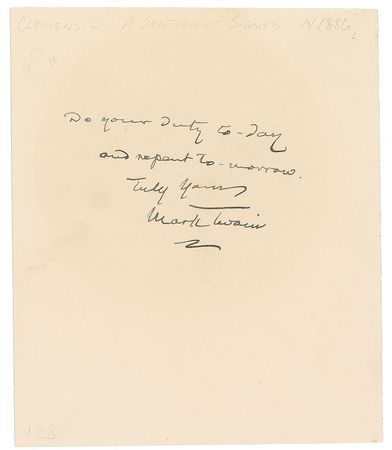 CLEMENS, S. A SENTIMENT SIGNED N1886
Do your duty to-day
and repent to-morrow.
Truly Yours
Mark Twain
138